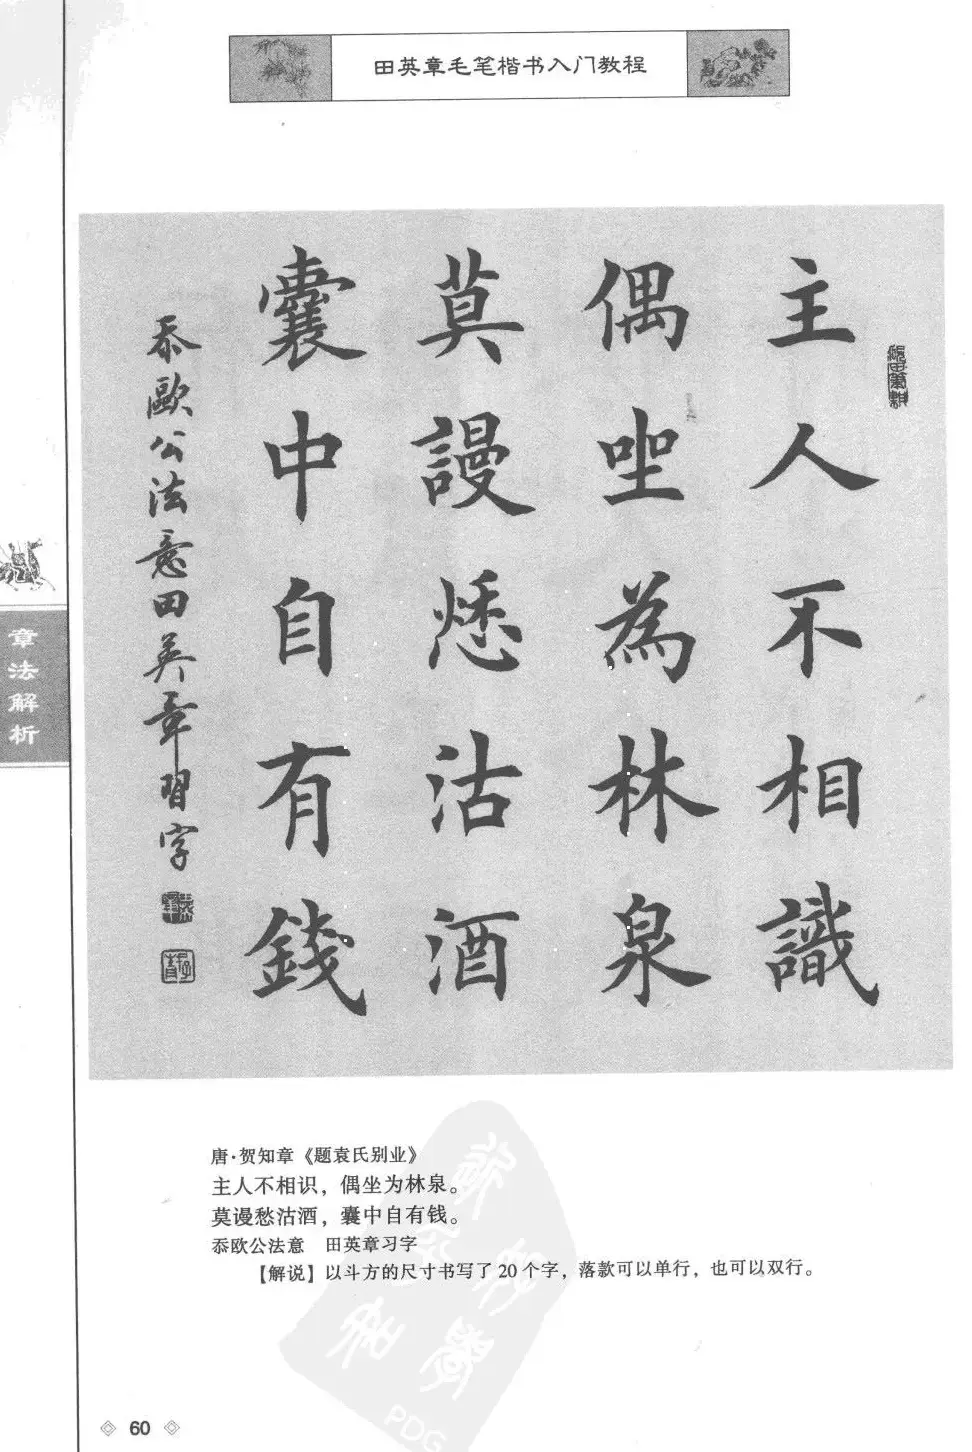 田英章毛笔楷书入门教程
主人不相識
偶坐為林泉
莫謾愁沽酒
囊中自有錢
忝歐公法意田英章習字
章法解析
唐·贺知章《题袁氏别业》
主人不相识，偶坐为林泉。
莫谩愁沽酒，囊中自有钱。
忝欧公法意　田英章习字
【解说】以斗方的尺寸书写了20个字，落款可以单行，也可以双行。
60
PDG